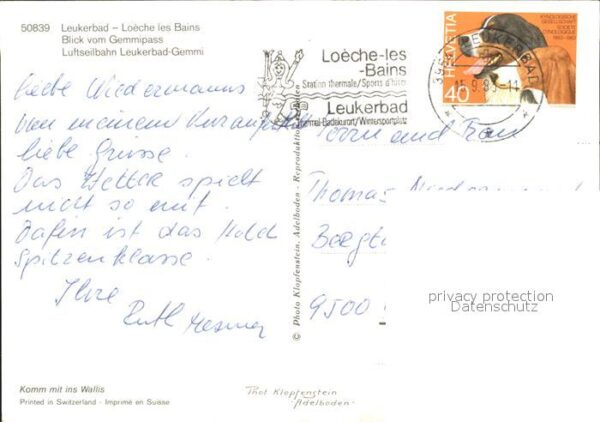 50839 Leukerbad – Loèche les Bains
Blick vom Gemmipass
Luftseilbahn Leukerbad-Gemmi
HELVETIA
40
KYNOLOGISCHE
GESELLSCHAFT
SOCIETE
CYNOLOGIQUE
1883-1983
LEUKERBAD
Loèche-les
-Bains
Station thermale/Sports d'hiver
Leukerbad
Thermal-Badekurort/Wintersportplatz
liebe Wiedermanns
Von meinem
liebe Grüsse.
Das Wetter spielt
nicht so mit.
Dafür ist das Hotel
Spitzenklasse.
Ihre
Ruth
Herrn und Frau
Thomas
9500
© Photo Klopfenstein, Adelboden - Reproduktion verboten
privacy protection
Datenschutz
Komm mit ins Wallis
Printed in Switzerland - Imprimé en Suisse
Phot Klopfenstein
-Adelboden-